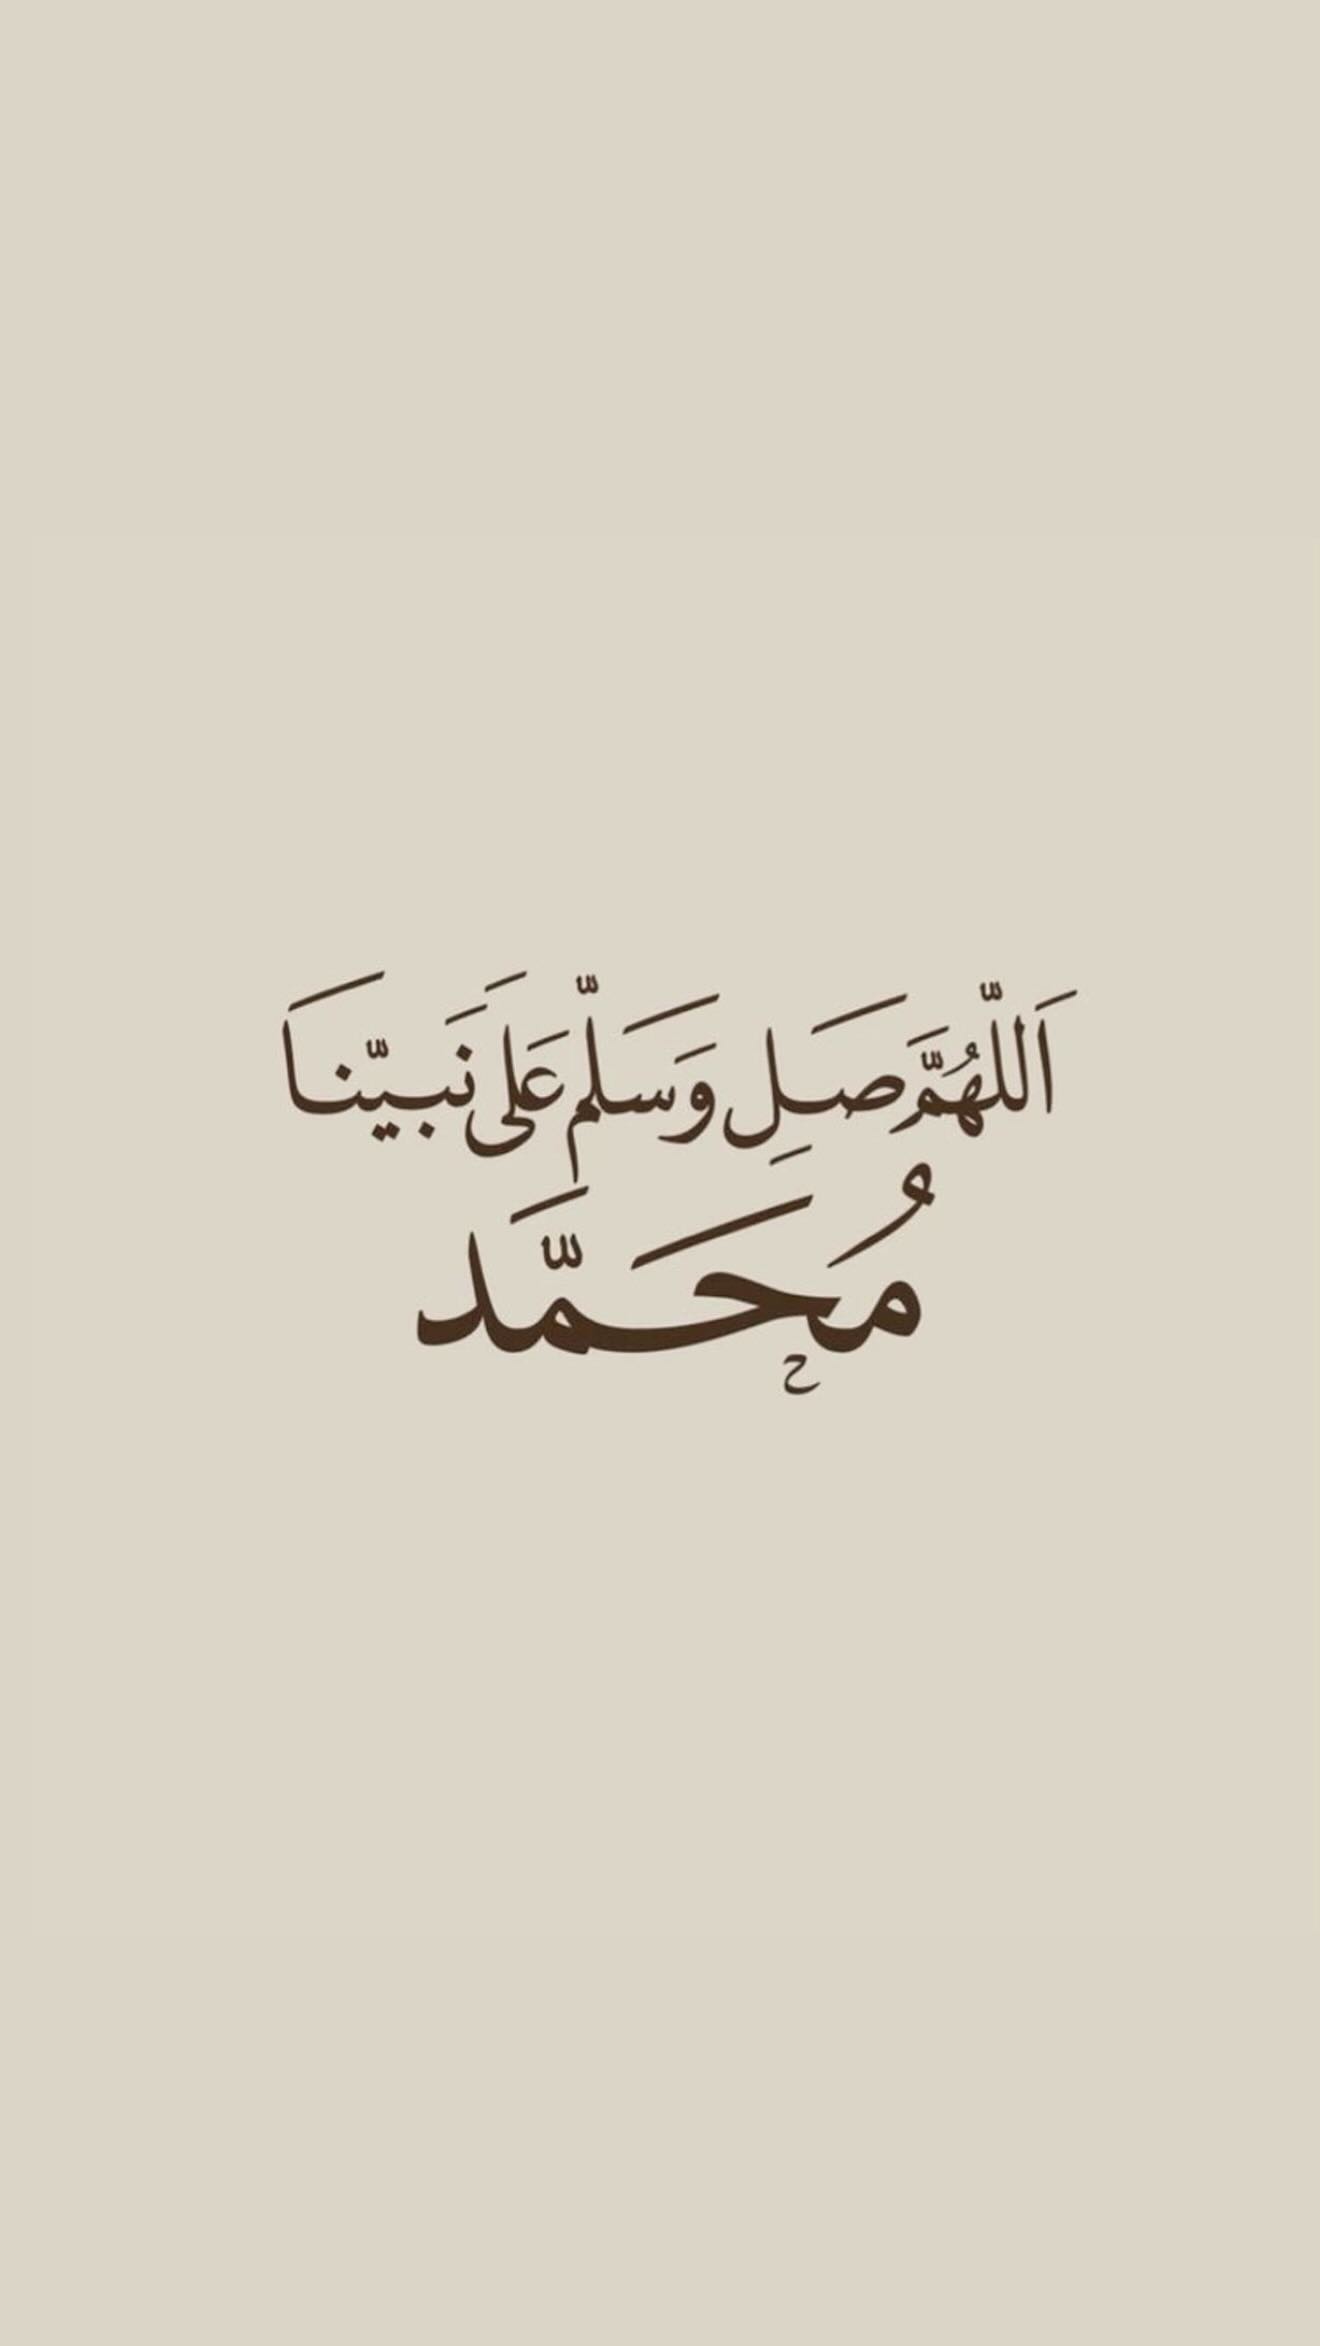 اَللّهُمَّ صَلِ وَسَلّم عَلَى نَبيّنَا
مُحَمَّد